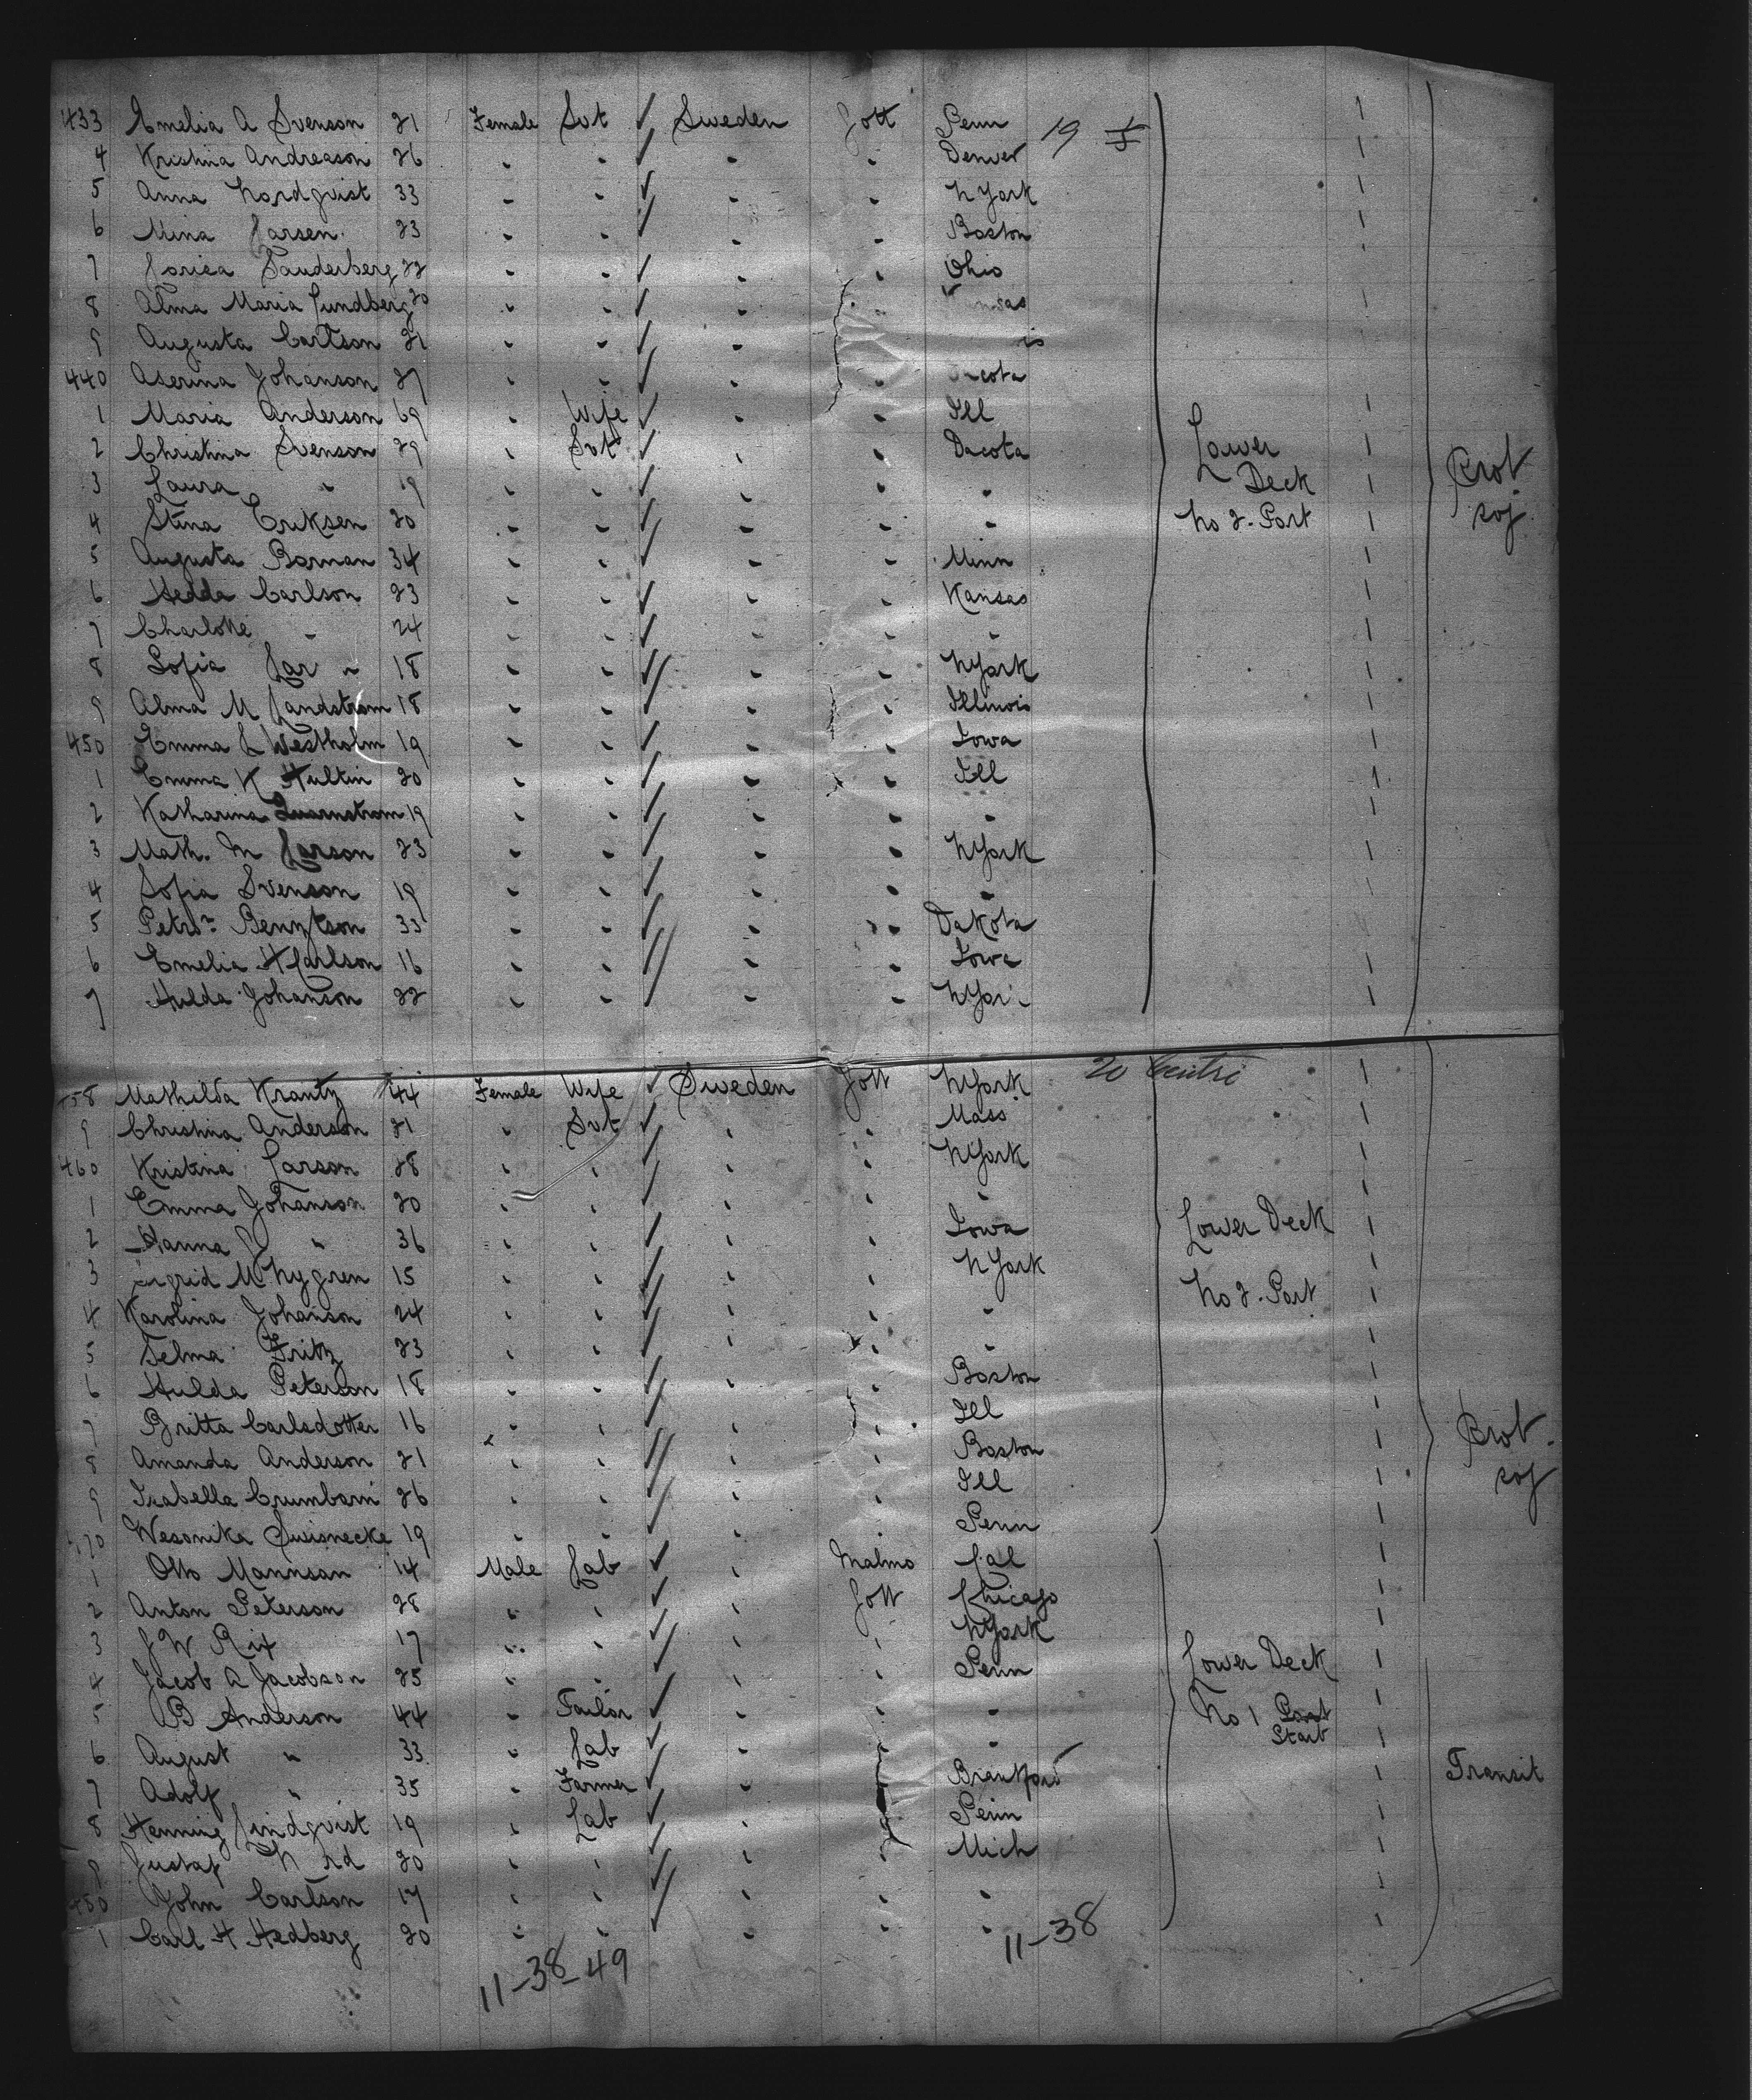 433 Emelia A Svenson 21 Female Svt ✓ Sweden Gott Penn 19 1
4 Kristina Andreason 26 " " ✓ " " Denver 1
5 Anna Nordqvist 33 " " ✓ " " NYork 1
6 Mina Larsen 23 " " ✓ " " Boston 1
7 Lovisa Sauderberg 22 " " ✓ " " Ohio 1
8 Alma Maria Lundberg 20 " " ✓ " " 1
9 Augusta Carlson 21 " " ✓ " " 1
440 Aserina Johanson 27 " " ✓ " "
1 Maria Anderson 69 " Wife ✓ " " Ill 1
2 Christina Svenson 29 " Svt ✓ " " Dacota Lower 1
3 Laura " 19 " " ✓ " " " Deck 1 Prot
4 Stina Eriksen 20 " " ✓ " " " No 2. Port 1 soj
5 Augusta Boman 34 " " ✓ " " Minn 1
6 Hedda Carlson 23 " " ✓ " " Kansas 1
7 Charlotte " 24 " " ✓ " " " 1
8 Sofia Lar " 18 " " ✓ " " NYork 1
9 Alma M Landstrom 18 " " ✓ " " Illinois 1
450 Emma L Westholm 19 " " ✓ " " Iowa 1
1 Emma K Hultin 20 " " ✓ " " Ill 1
2 Katharina Quarnstrom 19 " " ✓ " " " 1
3 Math. M Larson 23 " " ✓ " " NYork 1
4 Sofia Svenson 19 " " ✓ " " " 1
5 Petra Bengtson 33 " " ✓ " " Dakota 1
6 Emelia H Carlson 16 " " ✓ " " Iowa 1
7 Hulda Johanson 22 " " ✓ " " 1
458 Mathilda Krantz 44 Female Wife ✓ Sweden Gott NYork 20 Centre 1
9 Christina Anderson 21 " Svt ✓ " " Mass 1
460 Kristina Larson 28 " " ✓ " " NYork 1
1 Emma Johanson 20 " " ✓ " " " 1
2 Hanna " 36 " " ✓ " " Iowa Lower Deck 1
3 Ingrid M Nygren 15 " " ✓ " " NYork 1
4 Karolina Johanson 24 " " ✓ " " " No 2. Port 1
5 Selma Fritz 23 " " ✓ " " " 1
6 Hulda Peterson 18 " " ✓ " " Boston 1
7 Britta Carlsdotter 16 " " ✓ " " Ill 1
8 Amanda Anderson 21 " " ✓ " " Boston 1 Prot.
9 Isabella 26 " " ✓ " " Ill 1 soj
470 19 " " ✓ " " Penn 1
1 Otto Mannson 14 Male Lab ✓ " Malmo Cal 1
2 Anton Peterson 28 " " ✓ " Gott Chicago 1
3 J W Rix 17 " " ✓ " " NYork 1
4 Jacob A Jacobson 25 " " ✓ " " Penn Lower Deck 1
5 B Anderson 44 " Tailor ✓ " " " No 1 Port 1
Starb
6 August " 33 " Lab ✓ " " " 1
7 Adolf " 35 " Farmer ✓ " " 1 Transit
8 Henning Lindqvist 19 " Lab ✓ " " Penn 1
9 Gustaf 20 " " ✓ " " Mich 1
480 John Carlson 17 " " ✓ " " " 1
1 Carl H Hedberg 20 " " ✓ " " " 1
11-38
11-38-49